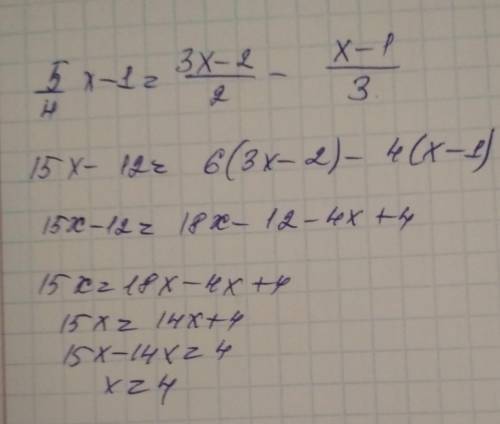 5/4 x-1= (3x-2)/2 - (x-1)/3
15x- 12= 6(3x-2)- 4(x-1)
15x-12= 18x- 12-4x+4
15x=18x-4x+4
15x= 14x+4
15x-14x=4
x=4